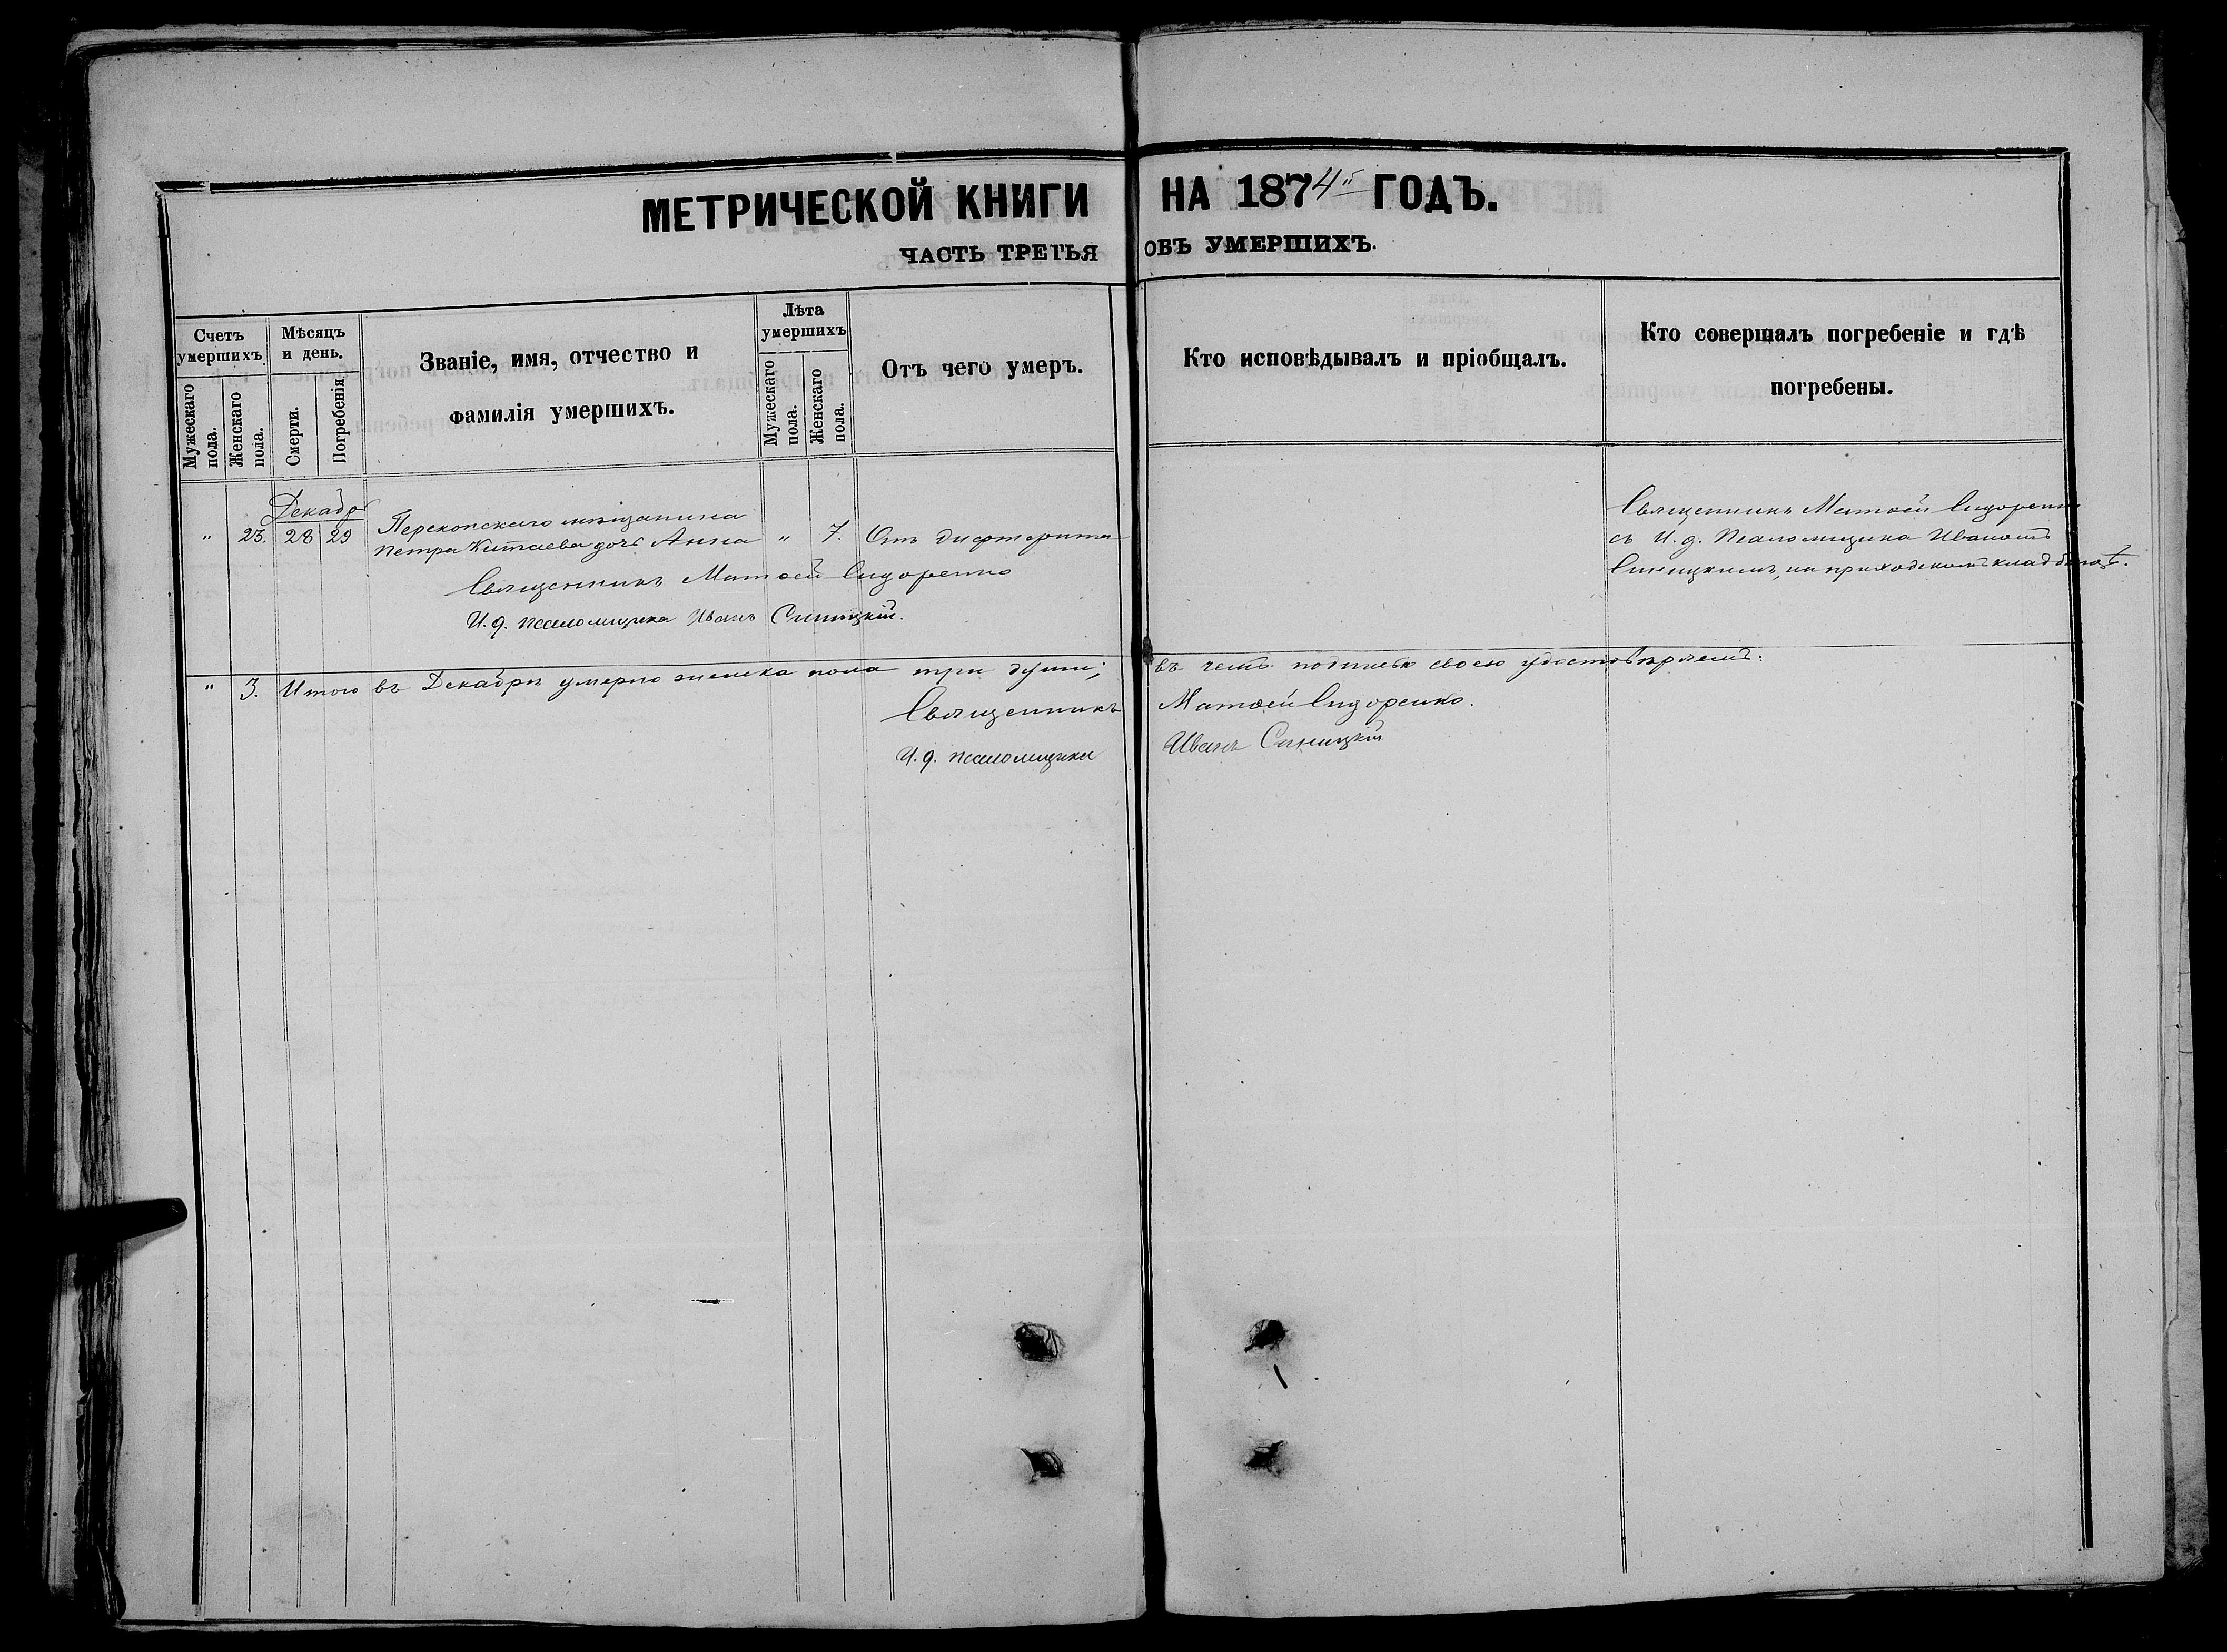 МЕТРИЧЕСКОЙ КНИГИ НА 1874й ГОДЪ.
ЧАСТЬ ТРЕТЬЯ ОБЪ УМЕРШИХЪ.
Счетъ умершихъ
Мужескаго пола.
Женскаго пола.
Мѣсяцъ и день.
Смерти.
Погребенія
Званіе, имя, отчество и
фамилія умершихъ.
Лѣта умершихъ
Мужескаго пола.
Женскаго пола.
Отъ чего умеръ.
Кто исповѣдывалъ и пріобщалъ.
Кто совершалъ погребеніе и гдѣ
погребены.
Декабр
" 23. 28 29
Перекопскаго мѣщанина
Петра Китаева дочь Анна " 7. Отъ дифтерита
Священникъ Матѳей Сидоренко
И. д. псаломщика Иванъ Синицкій.
Священникъ Матѳей Сидоренко
съ И. д. Псаломщика Иваномъ
Синицкимъ, на приходскомъ кладбищѣ.
" 3. Итого въ Декабрѣ умерло женска пола три души; въ чемъ подписью своею удостовѣряемъ:
Священникъ Матѳей Сидоренко.
И. д. псаломщика Иванъ Синицкій